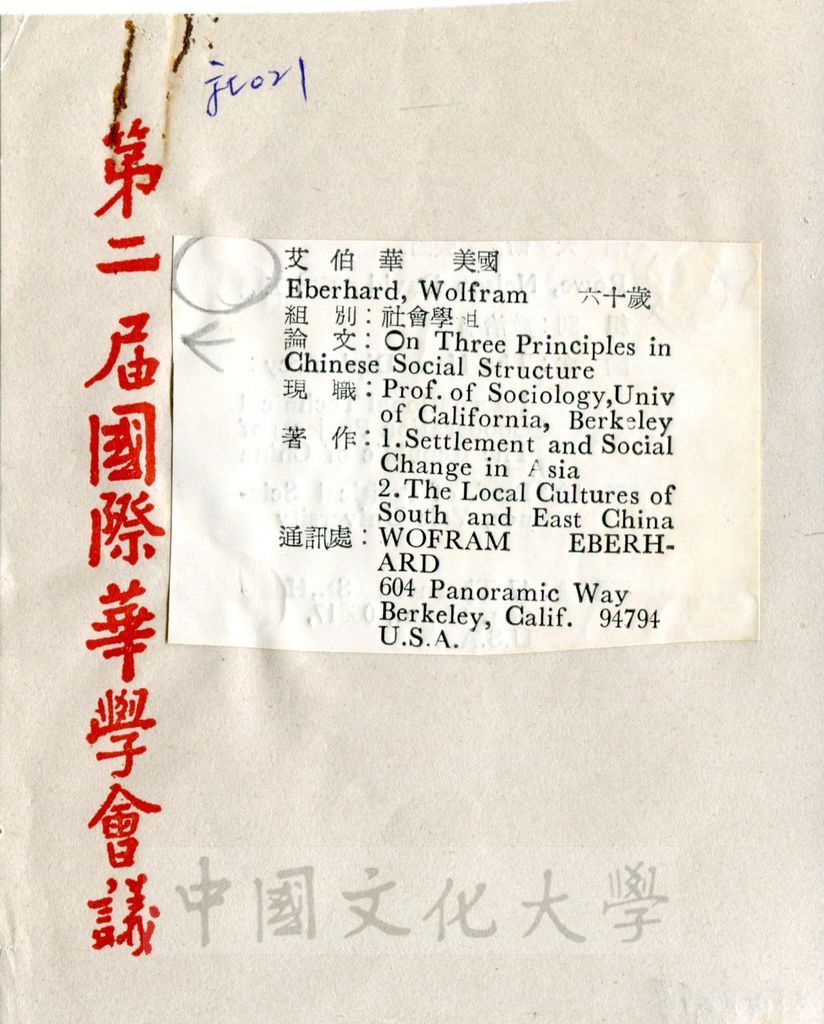 社021
第二届國際華學會議
艾伯華 美國
Eberhard, Wolfram 六十歲
組別：社會學組
論文：On Three Principles in
Chinese Social Structure
現職：Prof. of Sociology,Univ
of California, Berkeley
著作：1.Settlement and Social
Change in Asia
2.The Local Cultures of
South and East China
通訊處：WOFRAM EBERH-
ARD
604 Panoramic Way
Berkeley, Calif. 94794
U.S.A.
中國文化大學